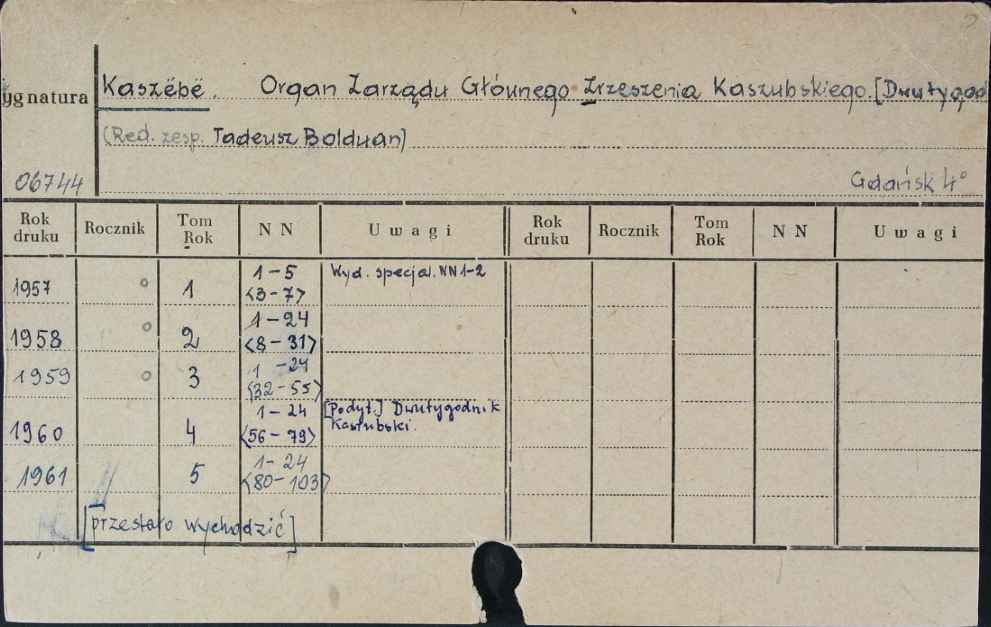 Kaszëbë. Organ Zarządu Głównego Zrzeszenia Kaszubskiego. [Dwutygod
ygnatura
(Red. zesp. Tadeusz Bolduan)
06744 Gdańsk 4°
Rok druku Rocznik Tom Rok NN Uwagi Rok druku Rocznik Tom Rok NN Uwagi
1957 ° 1 1-5 <3-7> Wyd. specjal. NN 1-2
1958 ° 2 1-24 <8-31>
1959 ° 3 1-24 <32-55>
1960 4 1-24 <56-79> [Podyt.] Dwutygodnik Kaszubski.
1961 5 1-24 <80-103>
[przestało wychodzić]